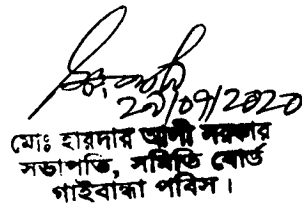 ২৯/০৭/2020
মোঃ হায়দার আলী সরকার
সভাপতি, সমিতি বোর্ড
গাইবান্ধা পবিস।